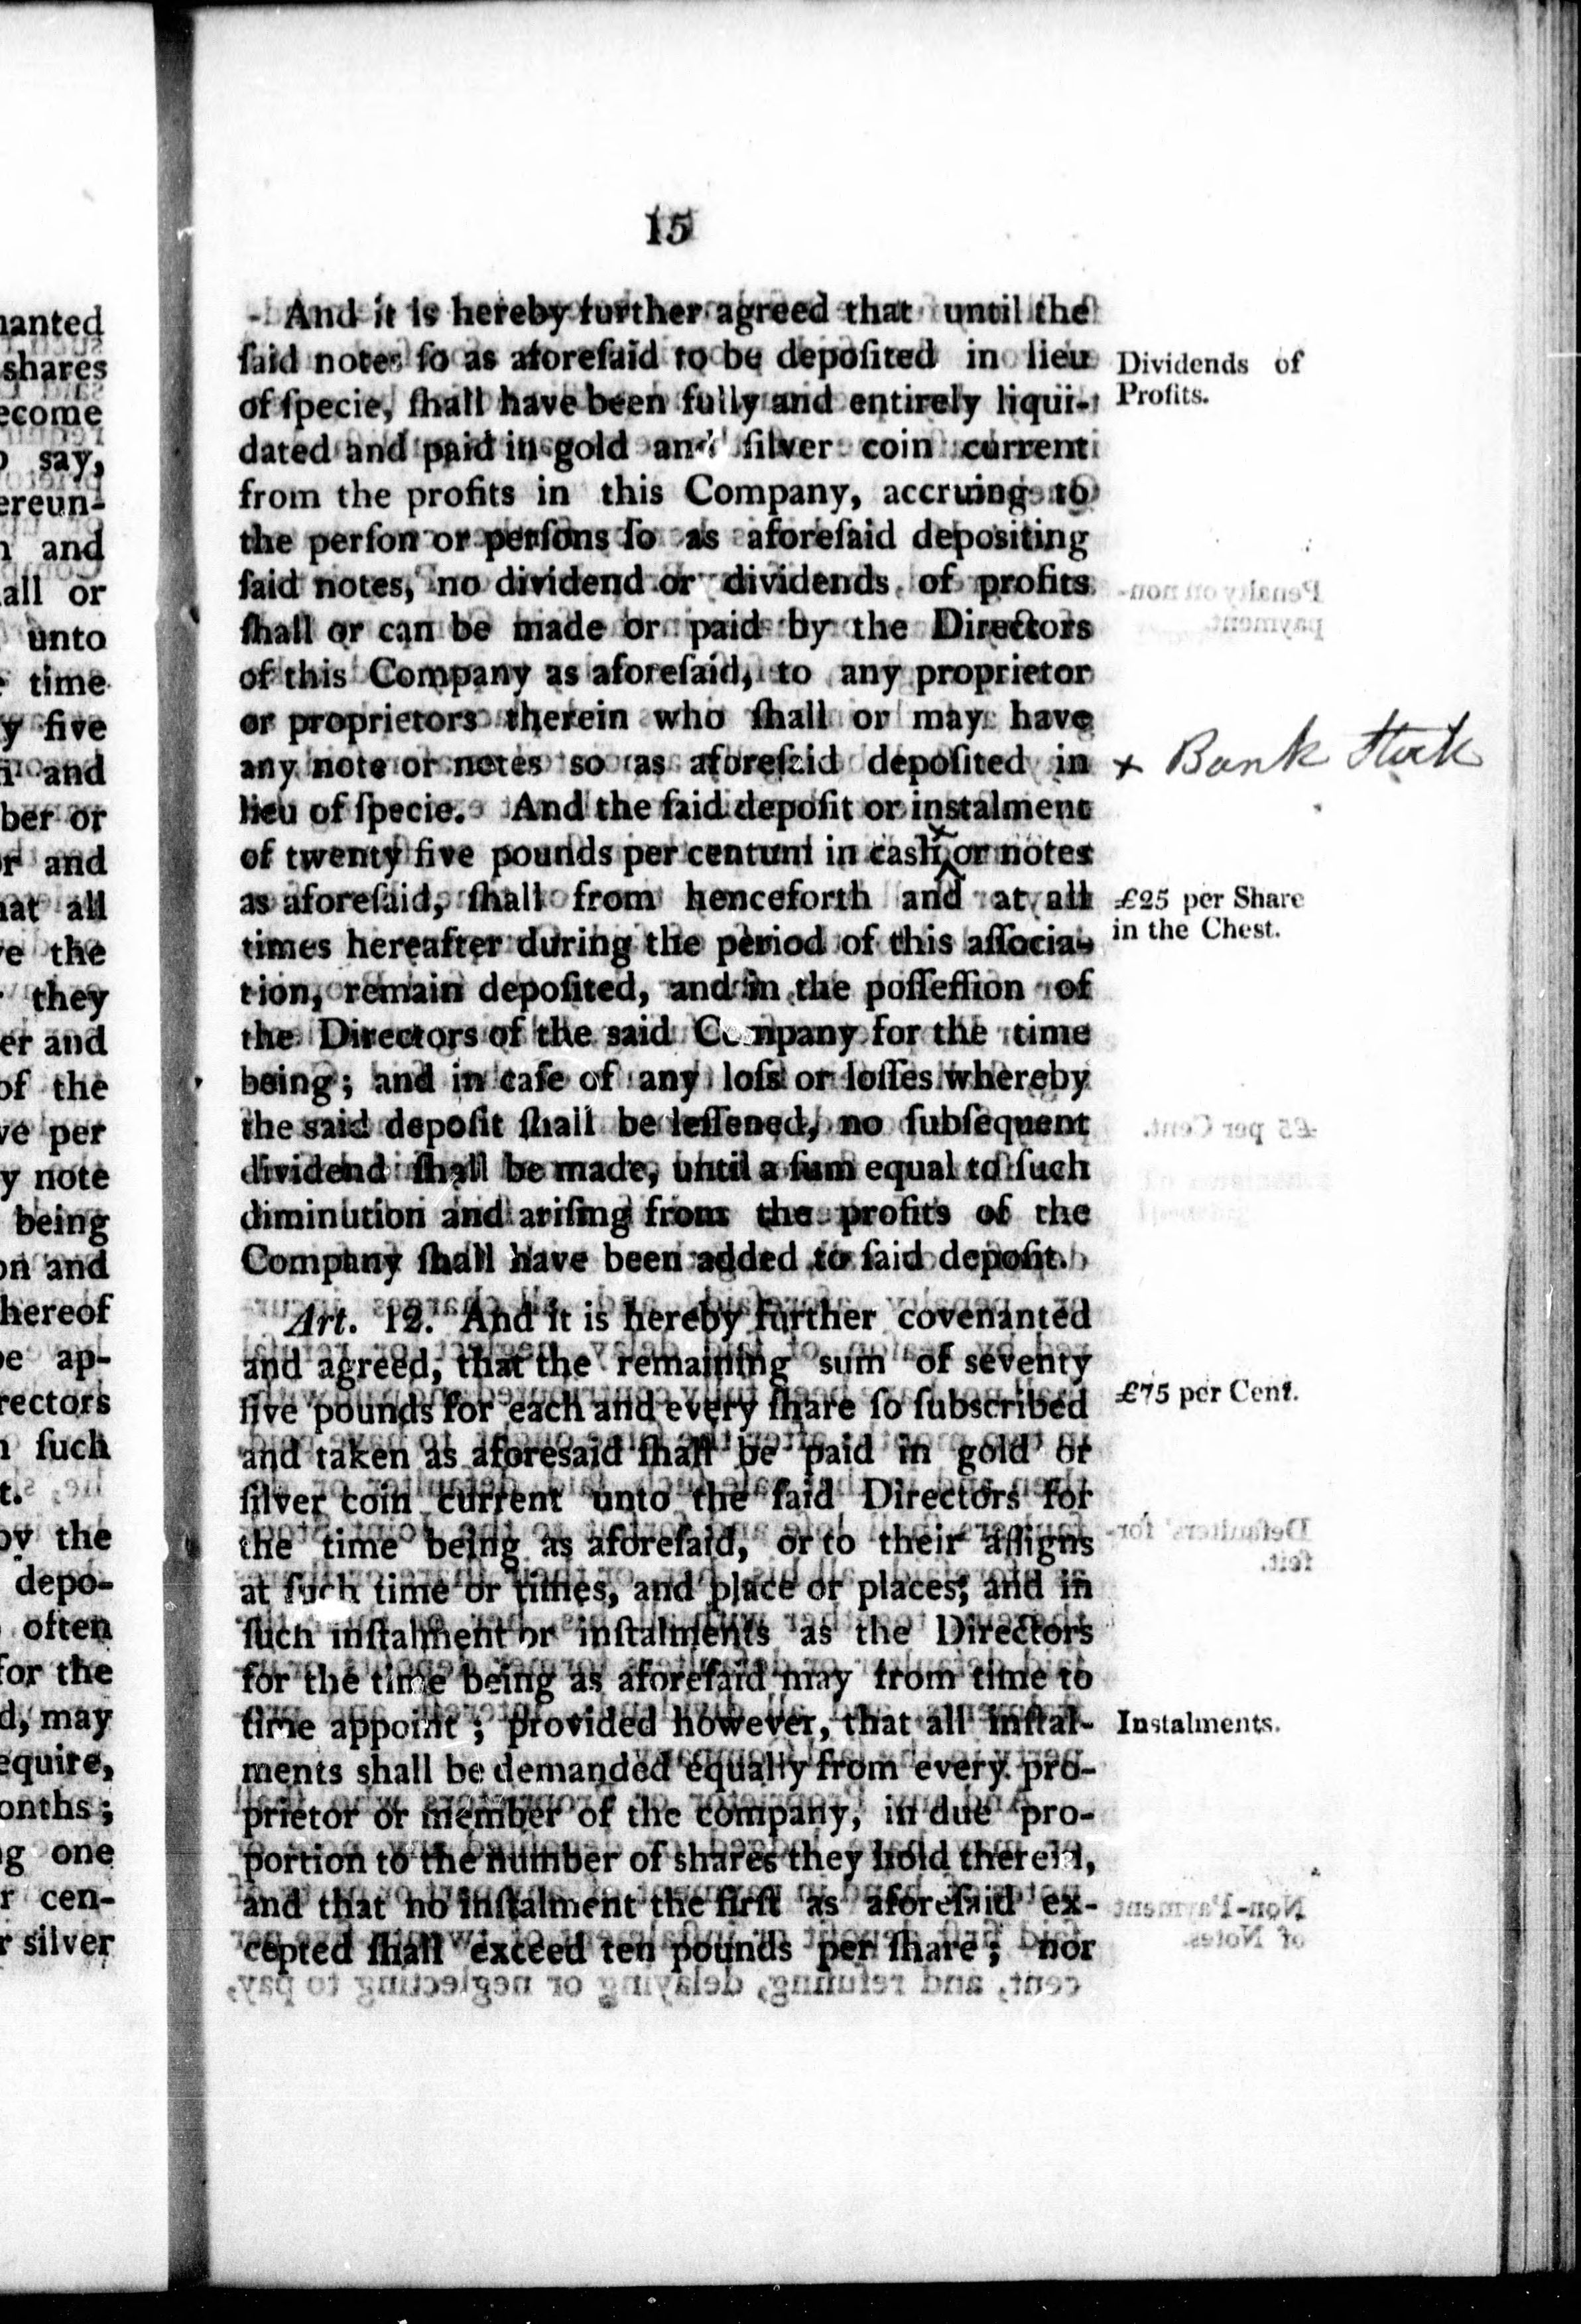 15
And it is hereby further agreed that until the
ſaid notes ſo as aforeſaid to be depoſited in lieu
of ſpecie, ſhall have been fully and entirely liqui-
dated and paid in gold and ſilver coin current
from the profits in this Company, accruing to
the perſon or perſons ſo as aforeſaid depositing
ſaid notes, no dividend or dividends of profits
ſhall or can be made or paid by the Directors
of this Company as aforeſaid, to any proprietor
or proprietors therein who ſhall or may have
any note or notes so as aforeſaid depoſited in
lieu of ſpecie. And the ſaid depoſit or instalment
of twenty five pounds per centum in cash, or notes
as aforeſaid, ſhall from henceforth and at all
times hereafter during the period of this aſſocia-
tion, remain depoſited, and in the poſſeſſion of
the Directors of the said Company for the time
being; and in caſe of any loſs or loſſes whereby
the said depoſit ſhall be leſſened, no ſubſequent
dividend ſhall be made, until a ſum equal to ſuch
diminution and ariſing from the profits of the
Company ſhall have been added to ſaid depoſit.
Art. 12. And it is hereby further covenanted
and agreed, that the remaining sum of seventy
five pounds for each and every ſhare ſo ſubscribed
and taken as aforesaid ſhall be paid in gold or
ſilver coin current unto the ſaid Directors for
the time being as aforeſaid, or to their aſſigns
at ſuch time or times, and place or places, and in
ſuch inſtalment or inſtalments as the Directors
for the time being as aforeſaid may from time to
time appoint; provided however, that all inſtal-
ments shall be demanded equally from every pro-
prietor or member of the company, in due pro-
portion to the number of shares they hold therein,
and that no inſtalment the firſt as aforeſaid ex-
cepted ſhall exceed ten pounds per ſhare; nor
Dividends of
Profits.
+ Bank Stock
£25 per Share
in the Chest.
£75 per Cent.
Instalments.
nanted
shares
ecome
say,
ereun-
and
all or
unto
time
y five
and
ber or
r and
at all
e the
they
er and
of the
ve per
y note
being
on and
hereof
be ap-
rectors
ſuch
t.
by the
depo-
often
for the
d, may
equire,
onths;
g one
r cen-
r silver